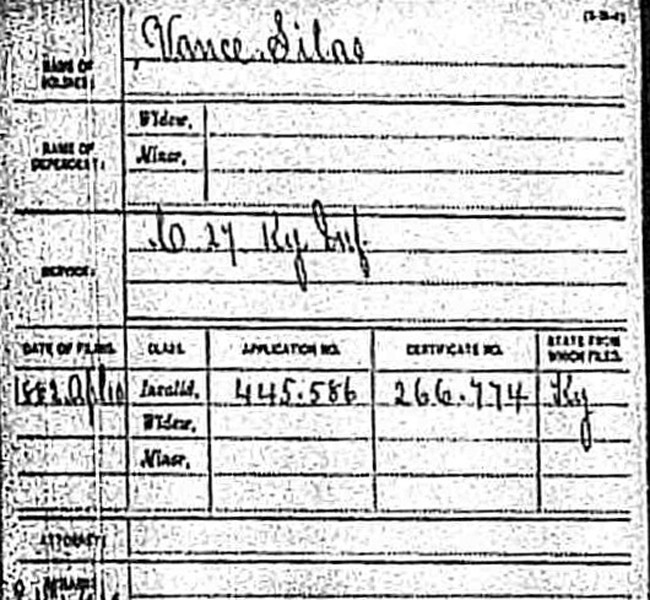 (3-26-4)
NAME OF SOLDIER: Vance, Silas
NAME OF DEPENDENT:
Widow,
Minor,
SERVICE: C 27 Ky Inf.
DATE OF FILING. CLASS. APPLICATION NO. CERTIFICATE NO. STATE FROM WHICH FILED.
1882 Apl 10 Invalid, 445.586 266.774 Ky
Widow,
Minor,
ATTORNEY:
REMARKS: